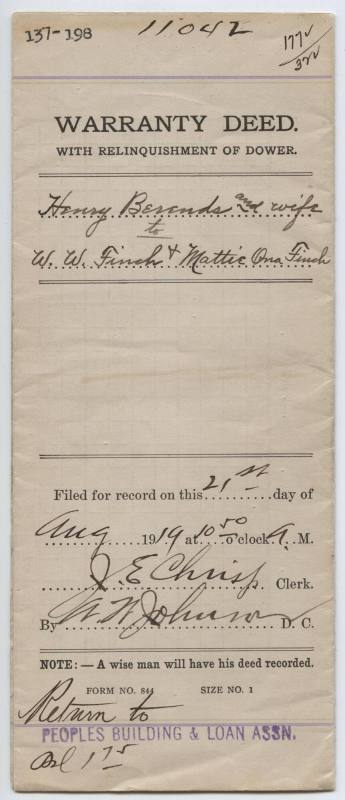 137-198
11042
WARRANTY DEED.
WITH RELINQUISHMENT OF DOWER.
Henry Berends and wife
to
W. W. Finch & Mattie Ona Finch
Filed for record on this 21st day of
Aug 1919 at 10 50 o'clock A. M.
J. E. Chrisp Clerk.
By W W Johnson D. C.
NOTE: — A wise man will have his deed recorded.
FORM NO. 844 SIZE NO. 1
Return to
PEOPLES BUILDING & LOAN ASSN.
1 75